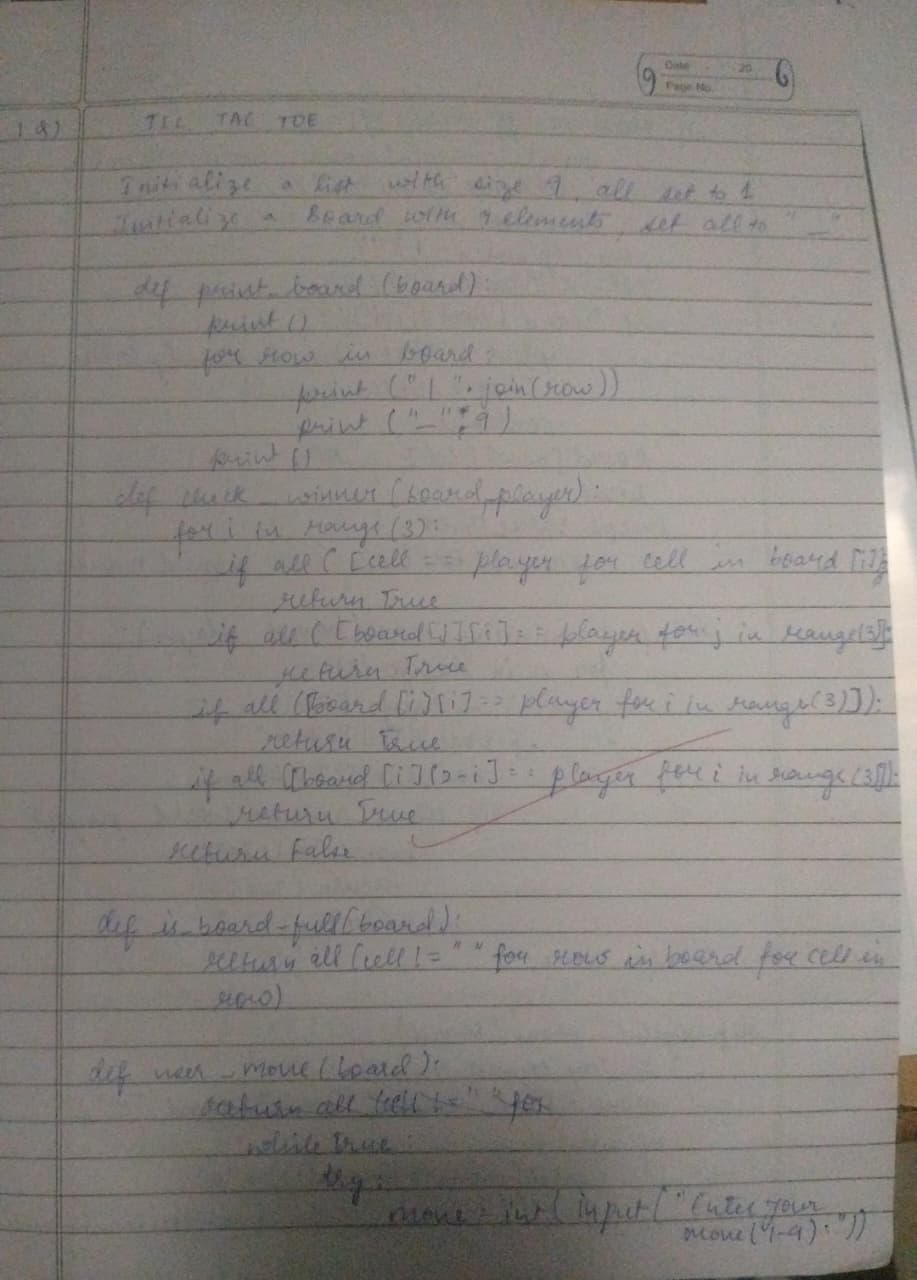 Date 20
Page No.
9 6
1 a) TIC TAC TOE
Initialize a list with size 9, all set to 1
Initialize a Board with 9 elements, set all to "_"
def print_board (board):
print ()
for row in board:
print (" | ". join(row))
print ("_" * 9)
print ()
def check_winner (board, player):
for i in range (3):
if all ( [cell == player for cell in board [i]]
return True
if all ( [board[j][i] == player for j in range(3)]:
return True
if all ([board [i][i] == player for i in range(3)]):
return True
if all ([board [i][2-i] == player for i in range (3)]):
return True
return False
def is_board_full(board):
return all (cell != " " for row in board for cell in
row)
def user_move (board):
return all (cell != " " for
while True:
try:
move = int( input ( " Enter your
move (1-9): "))